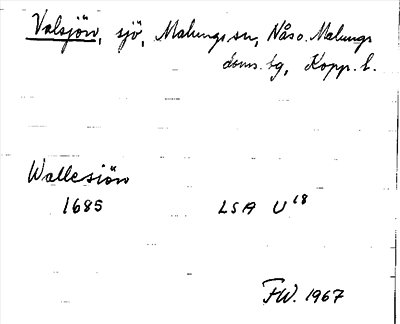 Valsjön, sjö, Malungs sn, Nås o. Malungs
doms. bg, Kopp. l.
Wallesiön
1685 LSA U18
FW. 1967